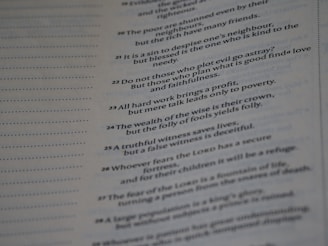 and the wicked
righteous.
20 The poor are shunned even by their
neighbours,
but the rich have many friends.
21 It is a sin to despise one's neighbour,
but blessed is the one who is kind to the
needy.
22 Do not those who plot evil go astray?
But those who plan what is good find love
and faithfulness.
23 All hard work brings a profit,
but mere talk leads only to poverty.
24 The wealth of the wise is their crown,
but the folly of fools yields folly.
25 A truthful witness saves lives,
but a false witness is deceitful.
26 Whoever fears the LORD has a secure
fortress,
and for their children it will be a refuge.
27 The fear of the LORD is a fountain of life,
turning a person from the snares of death.
28 A large population is a king's glory,
but without subjects a prince is ruined.
29 Whoever is patient has great understanding,